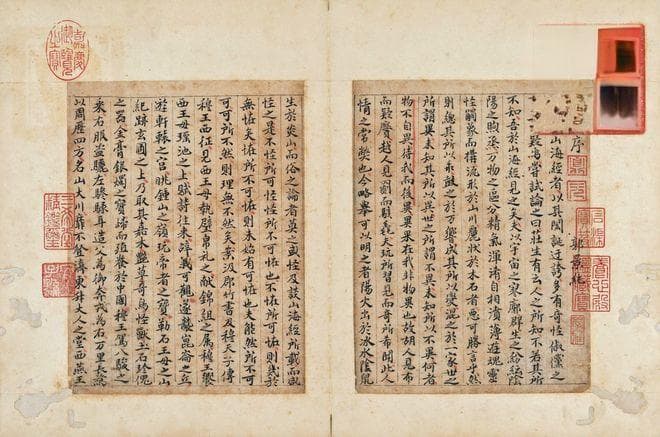 序
郭景純
山海經者以其閎誕迂誇多有奇怪俶儻之
嘗試論之曰莊生有云人之所知不若其所
不知吾於山海經見之矣夫以宇宙之寥廓群生之紛紜陰
陽之煦蒸萬物之區分精氣渾淆自相濆薄遊魂靈
怪觸象而構流形於山川麗狀於木石者惡可勝言乎然
則總其所以乖鼓之於一響成其所以變混之於一象世之
所謂異未知其所以異世之所謂不異未知其所以不異何者
物不自異待我而後異異果在我非物異也故胡人見布
而疑黂越人見罽而駭毳夫玩所習見而奇所希聞此人
情之常蔽也今略舉可以明之者陽火出於冰水陰鼠
生於炎山而俗之論者莫之或怪及談山海經所載而咸
怪之是不怪所可怪而怪所不可怪也不怪所可怪則幾於
無怪矣怪所不可怪則未始有可怪也夫能然所不可
可可所不然則理無不然矣案汲郡竹書及穆天子傳
穆王西征見西王母執璧帛之禮獻錦組之屬穆王饗
西王母瑤池之上賦詩往來辭義可觀遂襲崑崙之丘
遊軒轅之宮眺鍾山之嶺玩帝者之寶勒石王母之山
紀跡玄圃之上乃取其嘉木艷草奇鳥怪獸玉石珍瑰
之器金膏銀燭之寶歸而殖養於中國穆王駕八駿之
乘右服盜驪左驂騄耳造父為御奔戎為右萬里長騖
以周歷四方名山大川靡不登濟東升大人之堂西燕王
嘉慶御覽之寶